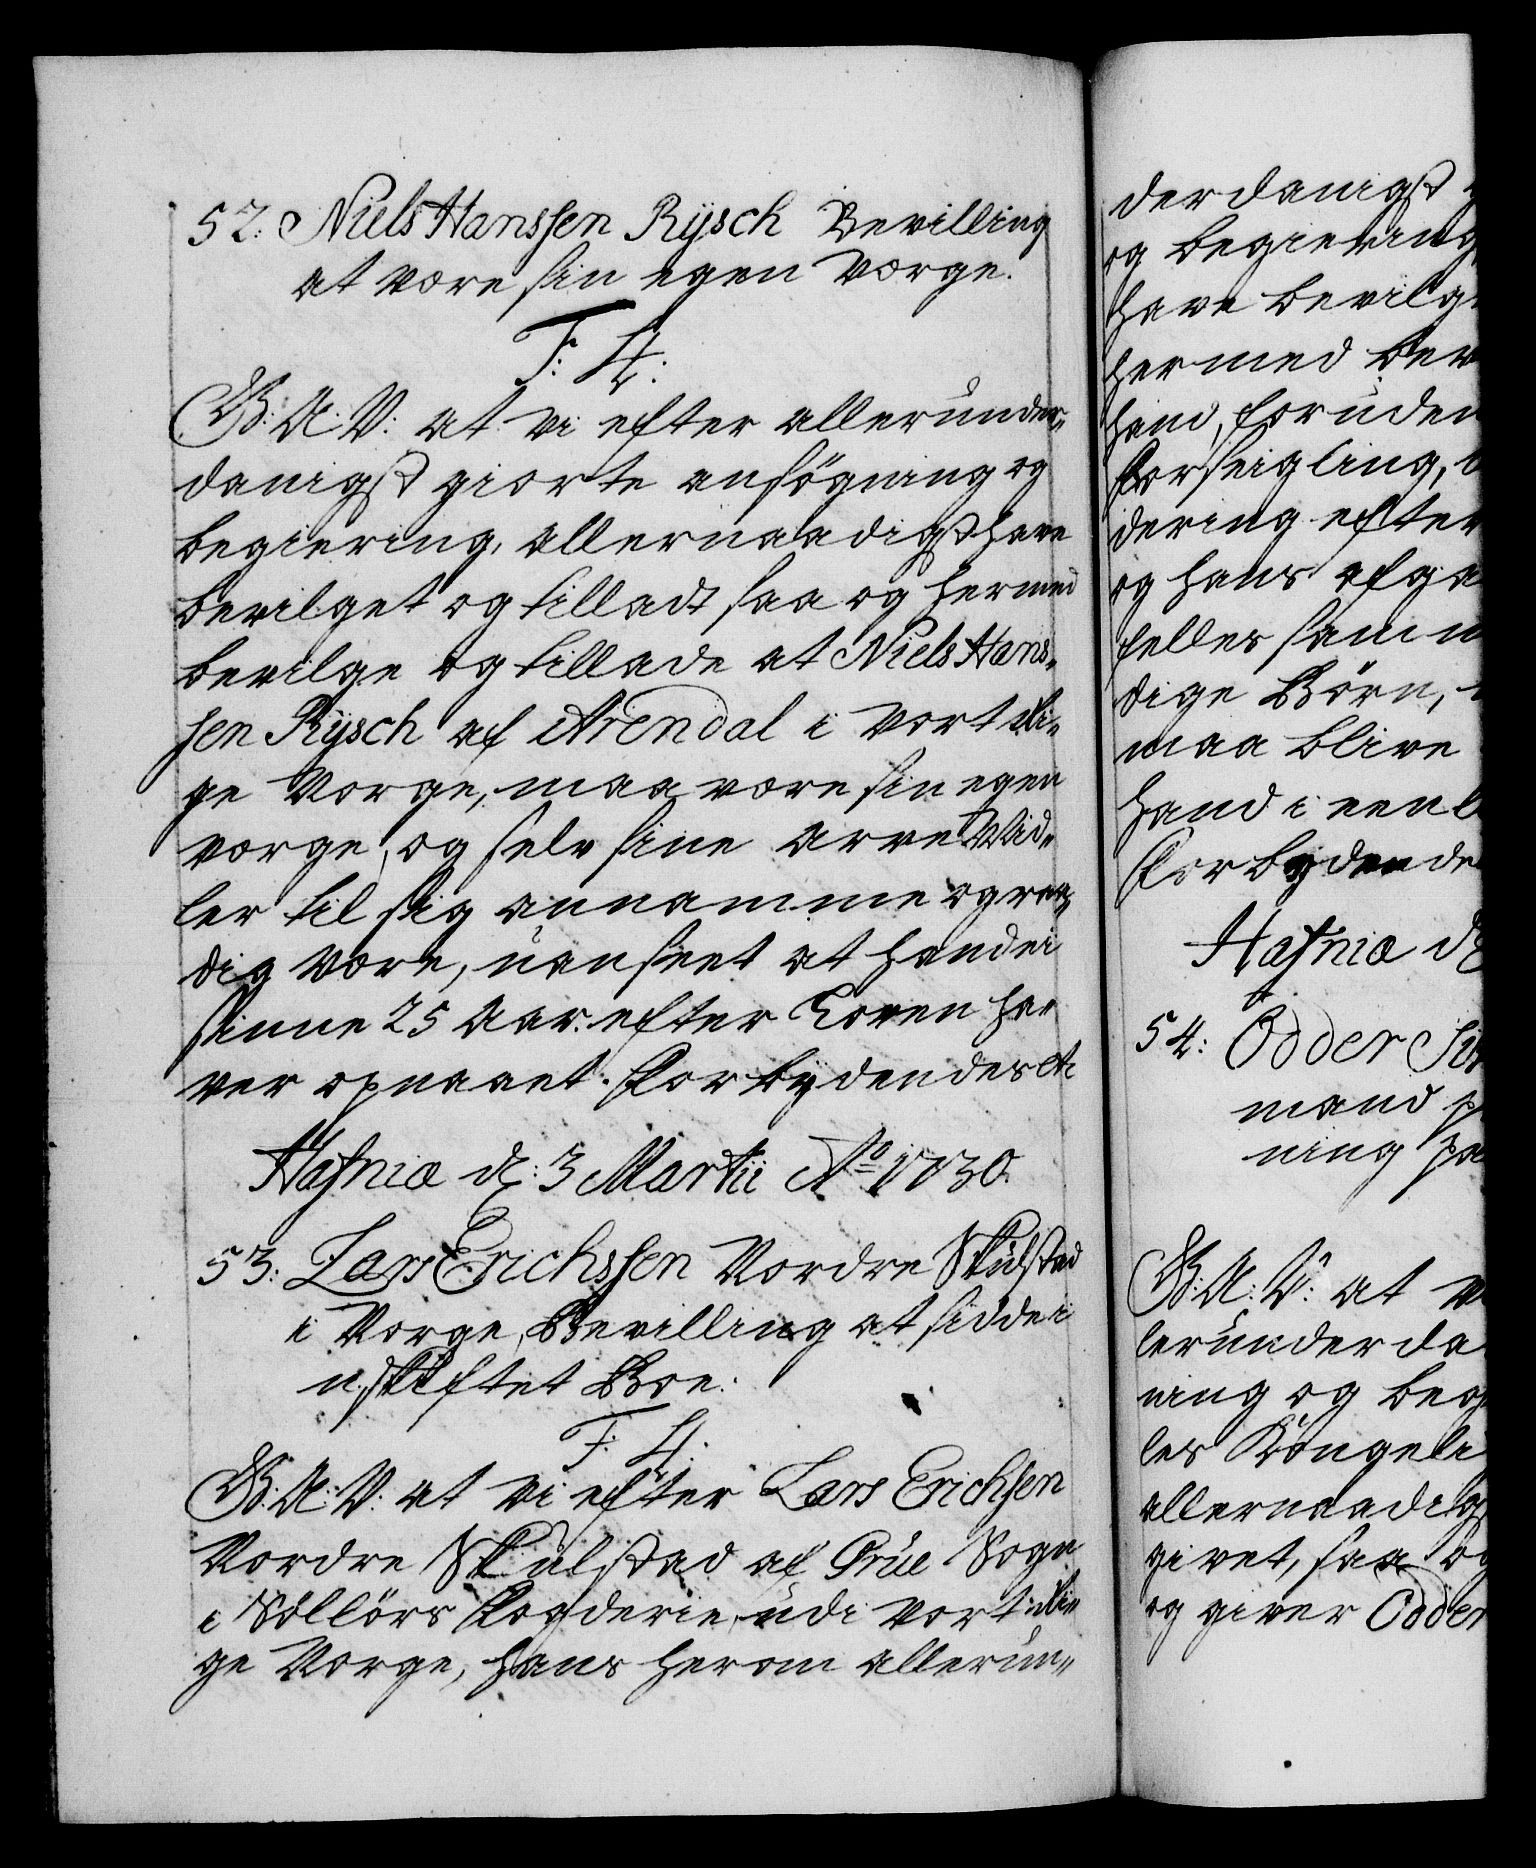 52. Niels Hanssen Rÿsch Bevilling
at være sin egen Værge.
F: 4.
G: A: V: at vi efter allerunder-
danigst giorte ansögning og
begiering, allernaadigst have
bevilget og tilladt saa og hermed
bevilge og tillade at Niels Hans-
sen Rÿsch af Arendal i Vort Ri-
ge Norge, maa være sin egen
værge, og selv sine Arve Mid-
ler til sig annamme og raa-
dig være, uanseet at hand ei
sinne 25 Aar. efter Loven ha-
ver opnaaet. Forbydendes etc
Hafniæ d: 3 Martii Ao 1730.
53: Lars Erichssen Nordre Skulstad
i Norge, Bevilling at sidde i
uskiftet Boe.
F: 4.
G: A: V: at vi efter Lars Erichsen
Nordre Skulstad af Grue Sogn
i Sollörs Fogderie, udi vort Ri-
ge Norge, hans herom allerun-
derdanigst
og begiering,
have bevilg
hermed bev
hand, foruden
Forseigling,
dering efter
og hans afga
felles sam
dige Börn,
maa blive
hand i een
Forbydende
Hafniæ d
54: Odder
mand
ning
G: A: V: at v
lerunderda
ning og beg
les Kongeli
allernaadigs
givet, saa og
og giver Odder